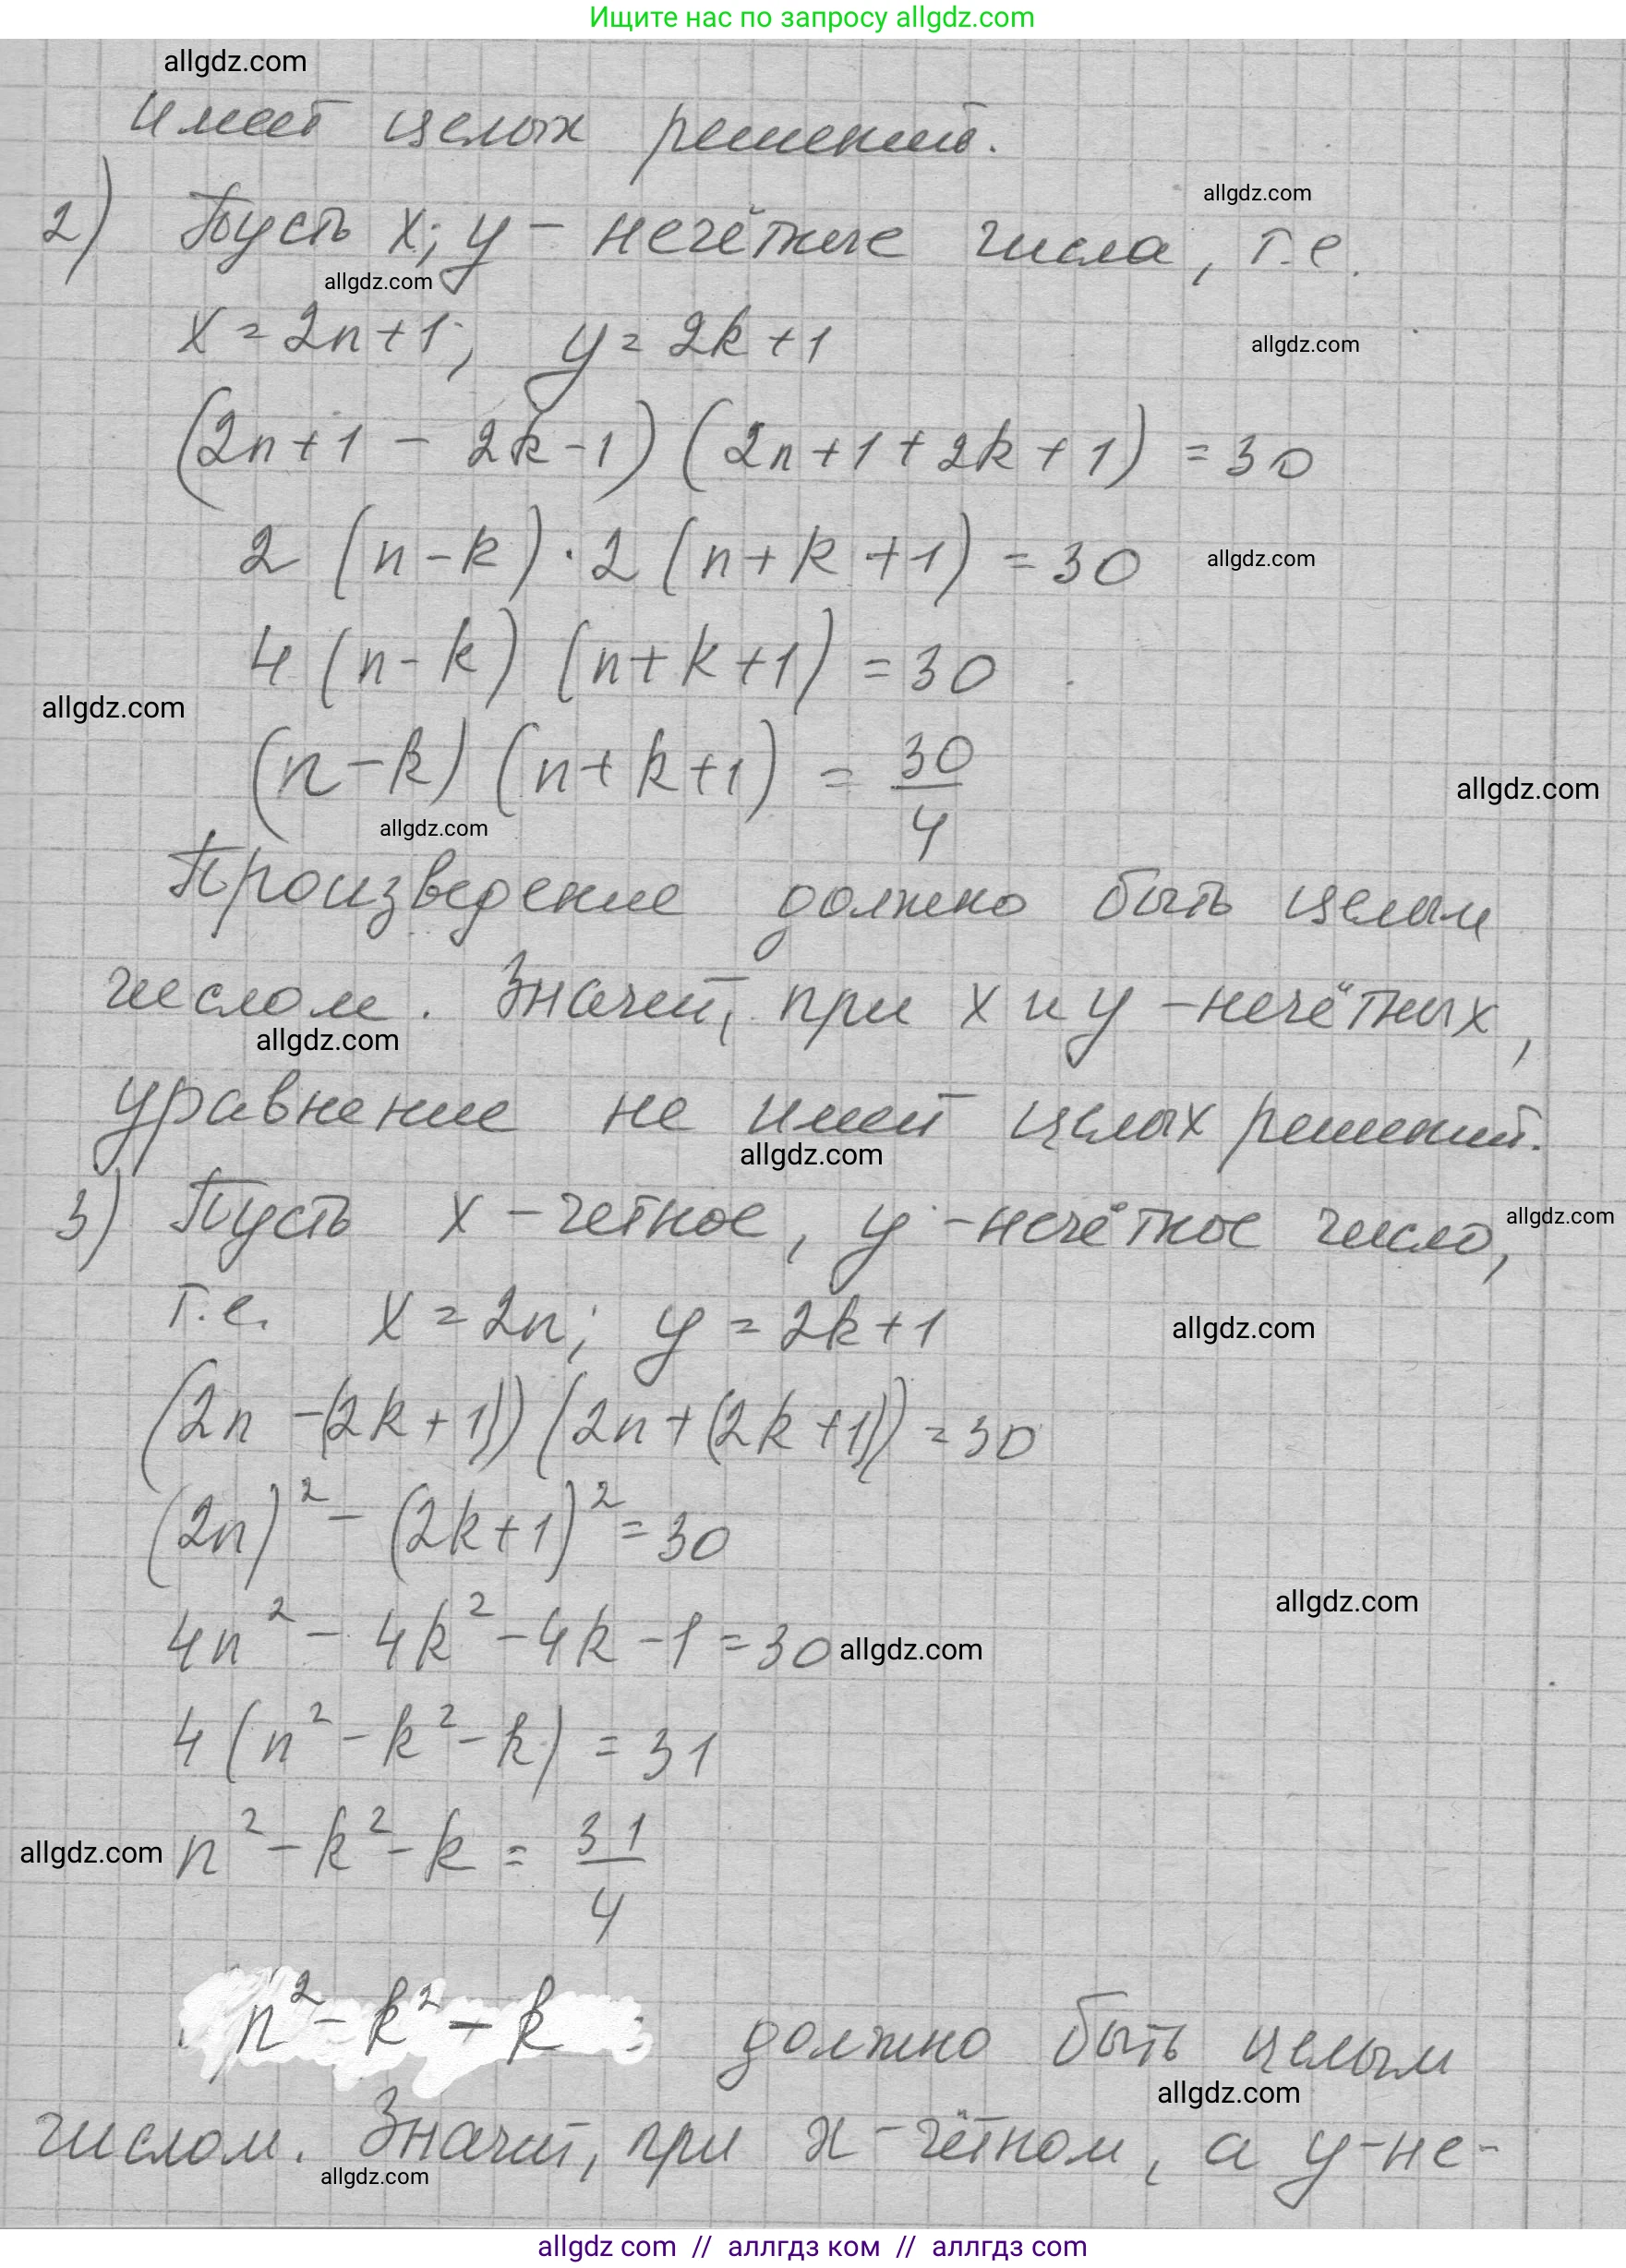 Ищите нас по запросу allgdz.com
allgdz.com
имеет целых решений.
allgdz.com
2) Пусть x; y - нечётные числа, т.е.
allgdz.com
x = 2n+1; y = 2k+1
allgdz.com
(2n+1 - 2k-1) (2n+1+2k+1) = 30
2 (n-k) · 2 (n+k+1) = 30 allgdz.com
4 (n-k) (n+k+1) = 30
allgdz.com
(n-k) (n+k+1) = 30/4
allgdz.com
allgdz.com
Произведение должно быть целым
числом. Значит, при x и y - нечётных,
allgdz.com
уравнение не имеет целых решений.
allgdz.com
3) Пусть x - четное, y - нечётное число, allgdz.com
т.е. x = 2n; y = 2k+1 allgdz.com
(2n - (2k+1)) (2n + (2k+1)) = 30
(2n)² - (2k+1)² = 30
allgdz.com
4n² - 4k² - 4k - 1 = 30 allgdz.com
4 (n² - k² - k) = 31
allgdz.com n² - k² - k = 31/4
n² - k² - k должно быть целым
allgdz.com
числом. Значит, при x - чётном, а y - не-
allgdz.com
allgdz com // аллгдз ком // аллгдз com